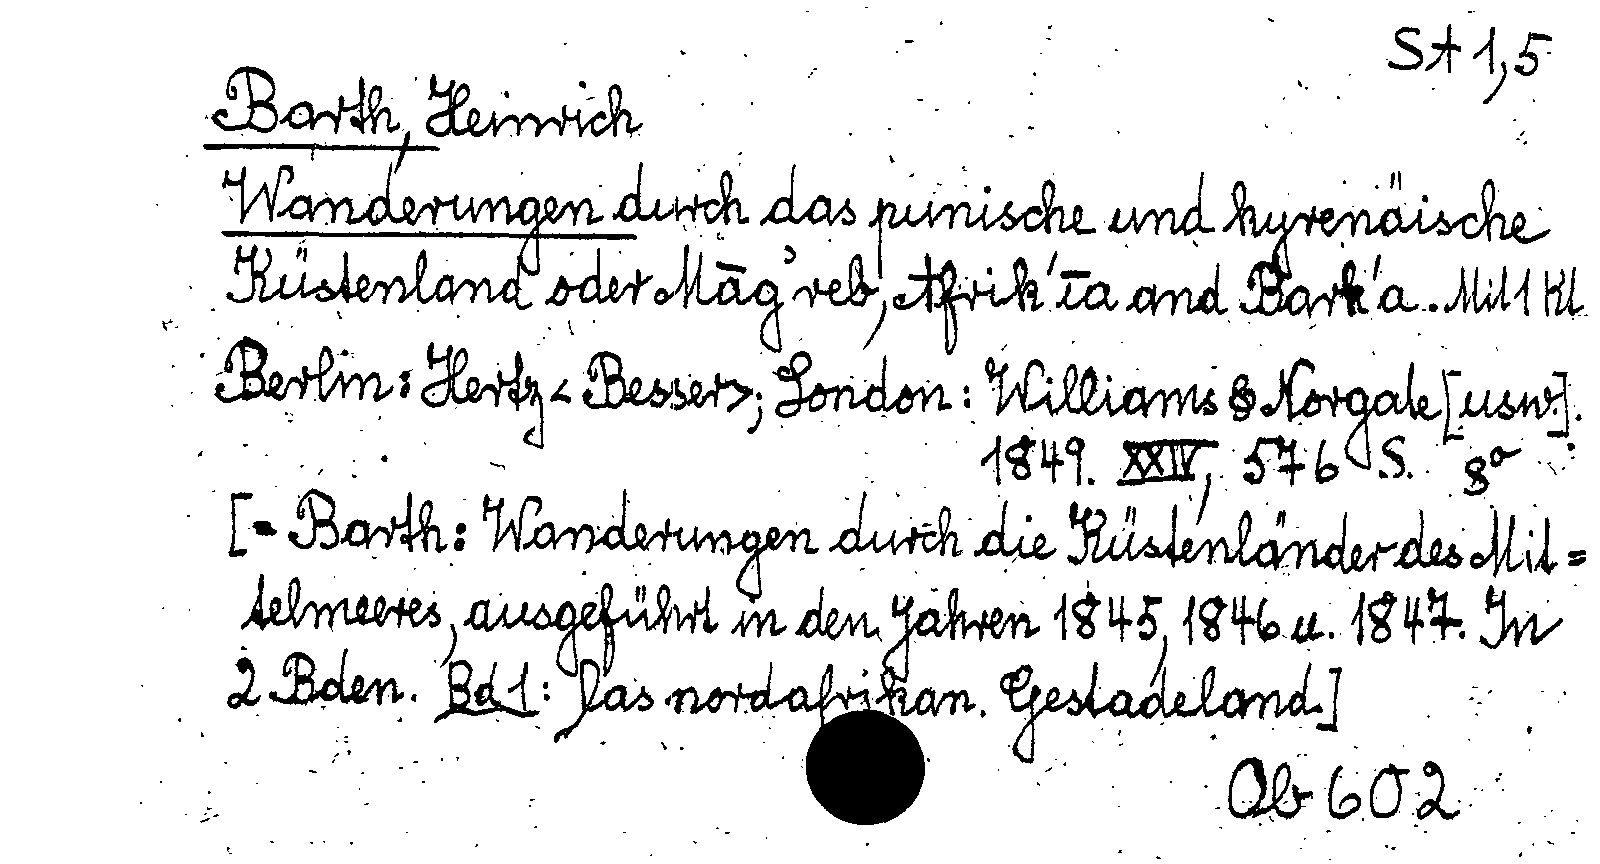 St 1,5
Barth, Heinrich
Wanderungen durch das punische und kyrenäische
Küstenland oder Māg'reb, Afrik'īa and Bark'a. Mit 1 Kt
Berlin: Hertz <Besser>; London: Williams & Norgate [usw.].
1849. XXIV, 576 S. 8°
[= Barth: Wanderungen durch die Küstenländer des Mit=
telmeeres, ausgeführt in den Jahren 1845, 1846 u. 1847. In
2 Bden. Bd 1: Das nordafrikan. Gestadeland.]
Ob 602